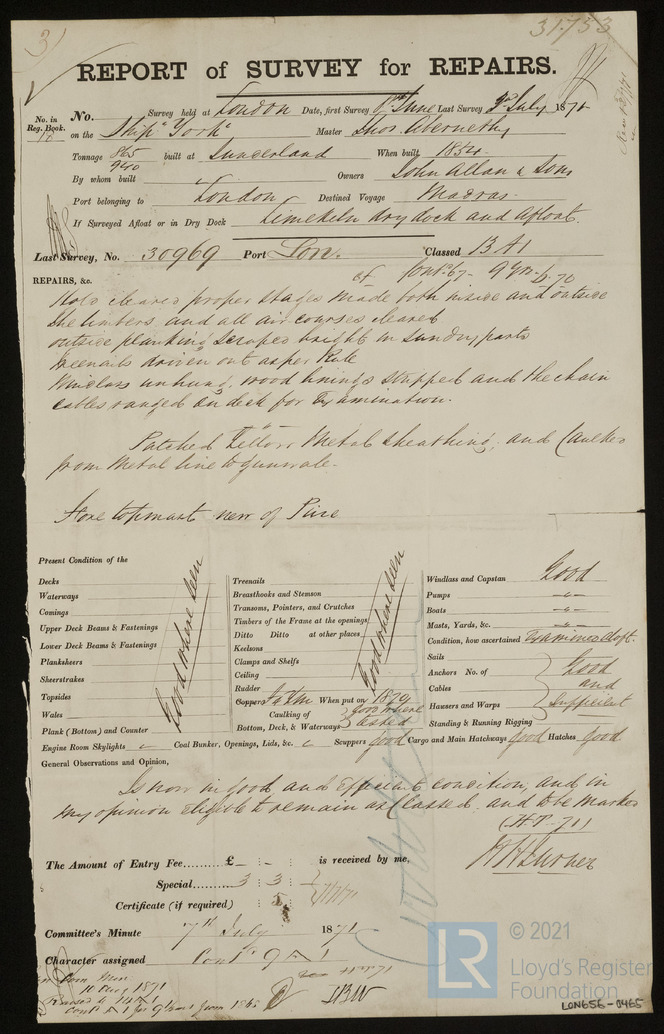 3
31.753
REPORT of SURVEY for REPAIRS.
No. in Reg. Book.
No. Survey held at London Date, first Survey June Last Survey July 1871
on the Ship "York" Master Thos. Abernethy
Tonnage 865 940 built at Sunderland When built 1854
By whom built Owners John Allan & Sons
Port belonging to London Destined Voyage Madras.
If Surveyed Afloat or in Dry Dock Limekiln dry dock and Afloat.
Last Survey, No. 30969 Port Lon. Classed A1
REPAIRS, &c.
Hold cleared proper stages made both inside and outside
the limbers and all air courses cleared
outside planking scraped bright in sundry parts
treenails driven out as per Rule
Windlass unhung, wood linings stripped and the chain
cables ranged on deck for Examination.
Patched Yellow Metal sheathing, and Caulked
from Metal line to gunwale.
Fore topmast new of Pine
Present Condition of the
Decks
Waterways
Comings
Upper Deck Beams & Fastenings
Lower Deck Beams & Fastenings
Planksheers
Sheerstrakes
Topsides
Wales
Plank (Bottom) and Counter
Good where seen
Treenails
Breasthooks and Stemson
Transoms, Pointers, and Crutches
Timbers of the Frame at the openings
Ditto Ditto at other places
Keelsons
Clamps and Shelfs
Ceiling
Rudder
Good where seen
Copper When put on 1870
Caulking of Bottom, Deck, & Waterways good where asked
Windlass and Capstan Good
Pumps -"-
Boats -"-
Masts, Yards, &c. -"-
Condition, how ascertained Examined Aloft.
Sails
Anchors No. of
Cables
Hausers and Warps
Good and Sufficient
Standing & Running Rigging
Engine Room Skylights Coal Bunker, Openings, Lids, &c. Scuppers good Cargo and Main Hatchways good Hatches Good
General Observations and Opinion,
Is now in good and Efficient condition, and in
my opinion eligible to remain as Classed. and to be marked
The Amount of Entry Fee......... £ – : – : is received by me,
Special....... 3 : 3 :
Certificate (if required) : 5 :
Committee's Minute 7th July 1871
Character assigned Cont. 9 A 1
10 Aug 1871
© 2021
LR
Lloyd's Register
Foundation
LON656-0465